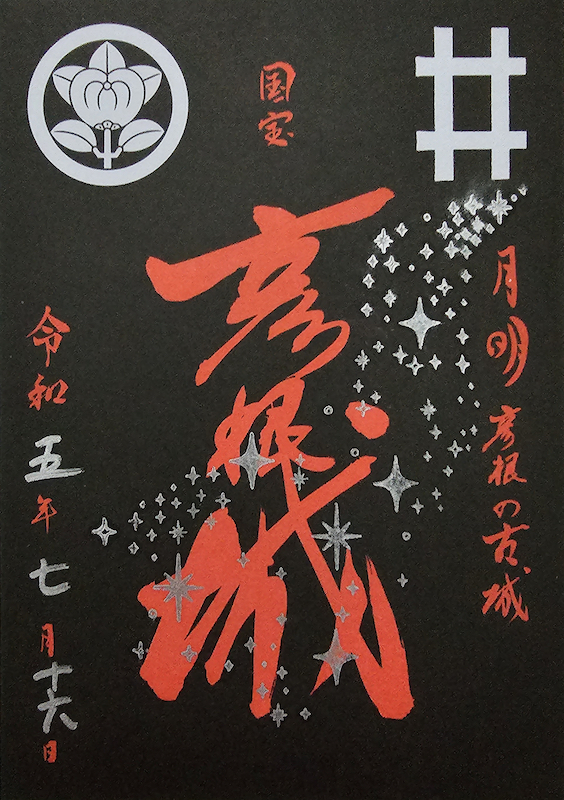 月明 彦根の古城
国宝
彦根城
令和五年七月十六日